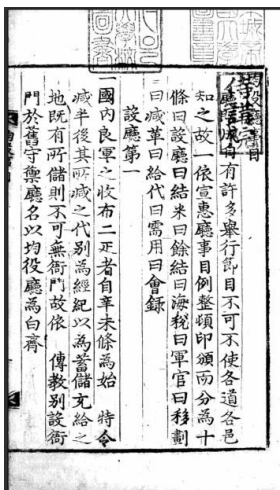 事目
有許多舉行節目不可不使各道各邑
知之故一依宣惠廳事目例整頓印頒而分為十
條曰設廳曰結米曰餘結曰海稅曰軍官曰移劃
曰減革曰給代曰需用曰會錄
設廳第一
一國內良軍之收布二疋者自辛未條為始 特令
減半後其所減之代別為經紀以為蓄儲支給之
地既有所儲則不可無衙門故依 傳敎別設衙
門於舊守禦廳名以均役廳為白齊